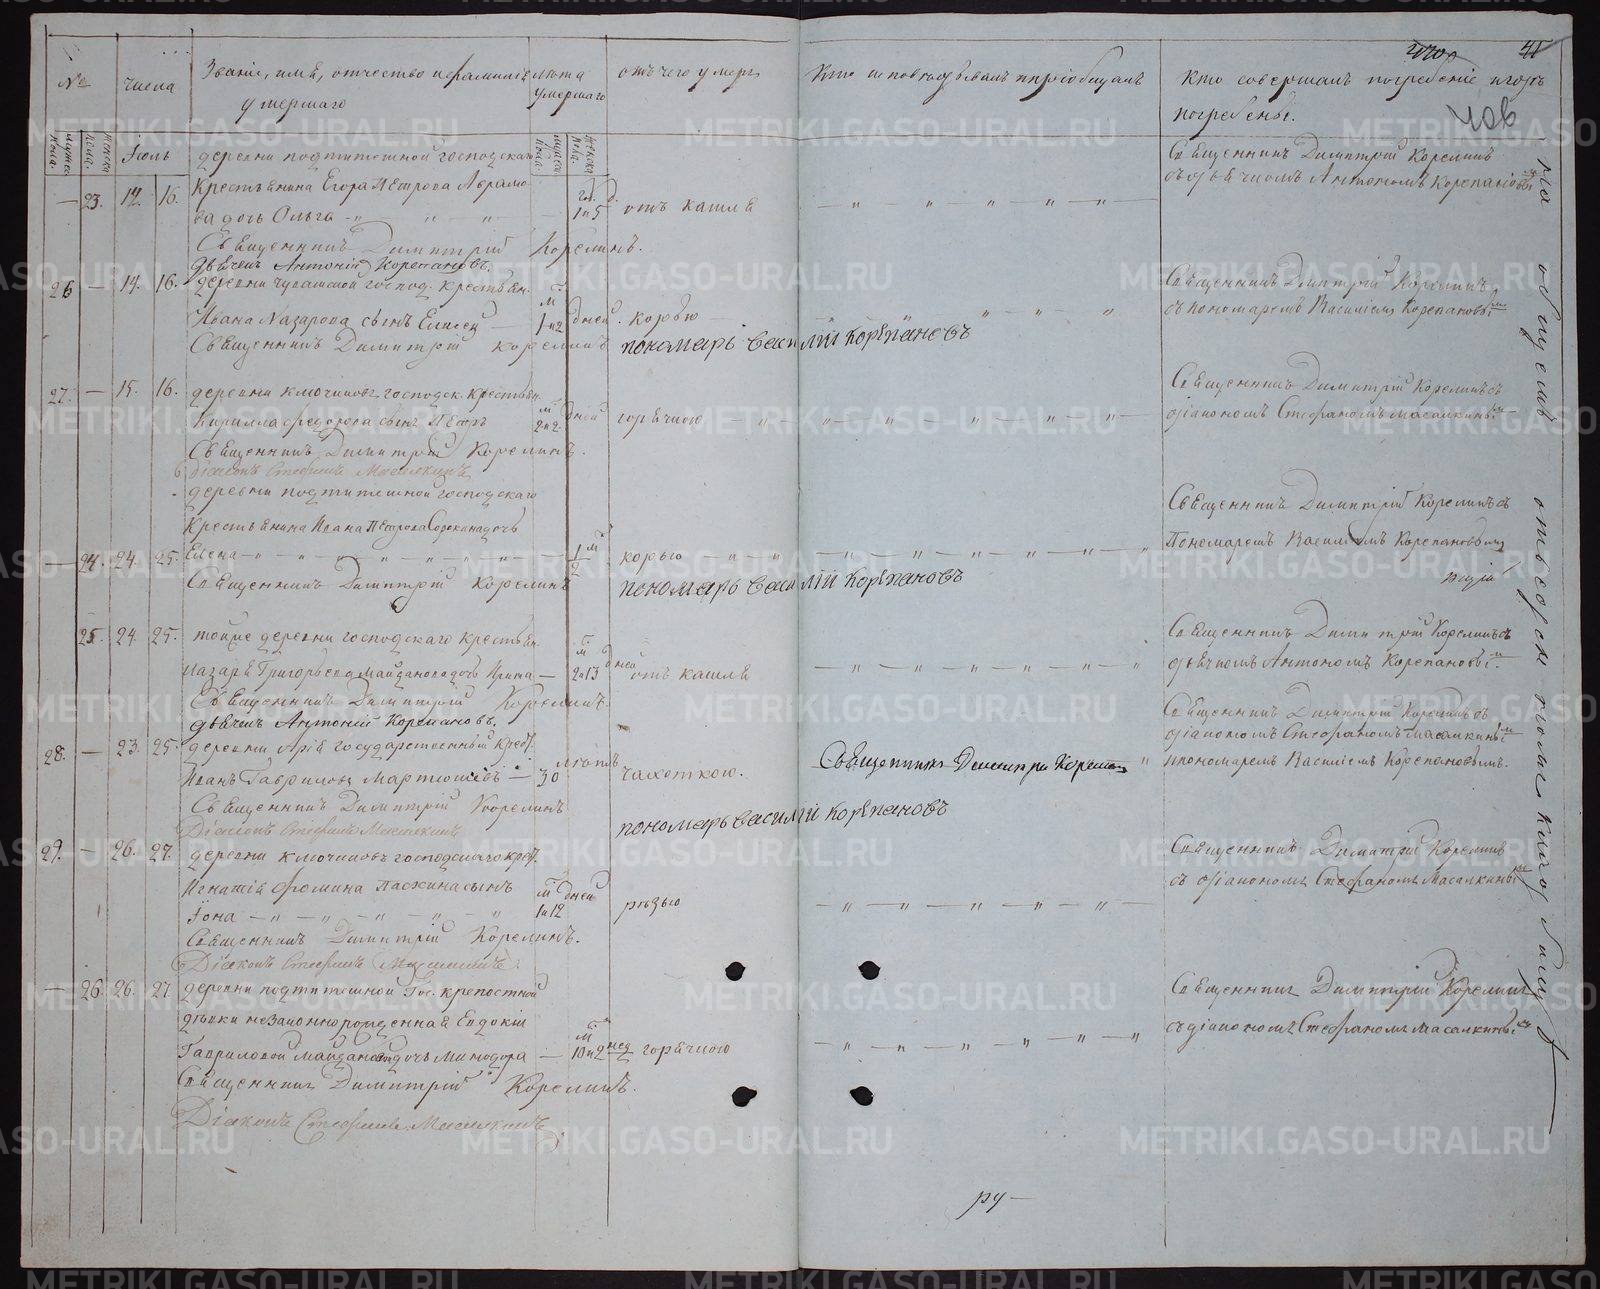 41
408
№ числа Званіе, имя, отчество и фамилия умершаго лѣта умершаго отъ чего умеръ Кто исповѣдывалъ и пріобщалъ Кто совершалъ погребеніе и гдѣ погребены.
Мужеска пола. Женска пола. Іюль Мужеска пола. Женска пола.
деревни подтитешной господскаго
— 23. 14. 16. Крестьянина Егора Петрова Аврамова дочь Ольга
год. 1 и 5 отъ кашля
Священникъ Димитрій Корелинъ
дьячкомъ Антономъ Корепановымъ
Священникъ Димитрій Корелинъ.
дьячекъ Антоній Корепановъ.
26 — 14. 16. деревни чувашской господ. крестьян.
Ивана Назарова сынъ Елисей — м. 1 и 2 дней. корью
Священникъ Димитрій Корелинъ
съ пономаремъ Василіемъ Корепановымъ
Священникъ Димитрій Корелинъ пономарь Василій Корепановъ
27. — 15. 16. деревни ключиковъ господск. крестьян.
Кирилла Федорова сынъ Петръ м. 2 и 2 дней горячкою
Священникъ Димитрій Корелинъ съ
діакономъ Стефаномъ Масалкинымъ
Священникъ Димитрій Корелинъ.
Діаконъ Стефанъ Масалкинъ
деревни подтитешной господскаго
Крестьянина Ивана Петрова Сорокина дочь
— 24. 24. 25. Елена м. 1/2 корью
Священникъ Димитрій Корелинъ съ
Пономаремъ Василіемъ Корепановымъ
Священникъ Димитрій Корелинъ пономарь Василій Корепановъ
25. 24. 25. тойже деревни господскаго крестьян.
Назара Григорьева Майданова дочь Ирина — м. 2 и 13 дней отъ кашля
Священникъ Димитрій Корелинъ съ
дьячкомъ Антономъ Корепановымъ
Священникъ Димитрій Корелинъ.
дьячекъ Антоній Корепановъ.
28. — 23. 25. деревни Арія государственный крест.
Иванъ Гавриловъ Мартюшевъ — лѣтъ 30 чахоткою. Священникъ Димитрій Корелинъ
Священникъ Димитрій Корелинъ съ
діакономъ Стефаномъ Масалкинымъ
и пономаремъ Василіемъ Корепановымъ.
Священникъ Димитрій Корелинъ
Діаконъ Стефанъ Масалкинъ пономарь Василій Корепановъ
29. — 26. 27. деревни ключиковъ господскаго крест.
Игнатія Фомина Пасхина сынъ
Іона м. 1 и 12 дней рѣзью
Священникъ Димитрій Корелинъ
съ діакономъ Стефаномъ Масалкинымъ
Священникъ Димитрій Корелинъ.
Діаконъ Стефанъ Масалкинъ.
— 26. 26. 27. деревни подтитешной Гос. крепостной
дѣвки незаконнорожденная Евдокіи
Гавриловой Майдановой дочь Минодора — м. 10 и 2 нед горячкою
Священникъ Димитрій Корелинъ
съ діакономъ Стефаномъ Масалкинымъ
Священникъ Димитрій Корелинъ.
Діаконъ Стефанъ Масалкинъ
на общемъ отведенномъ кладбищѣ
ру—
METRIKI.GASO-URAL.RU